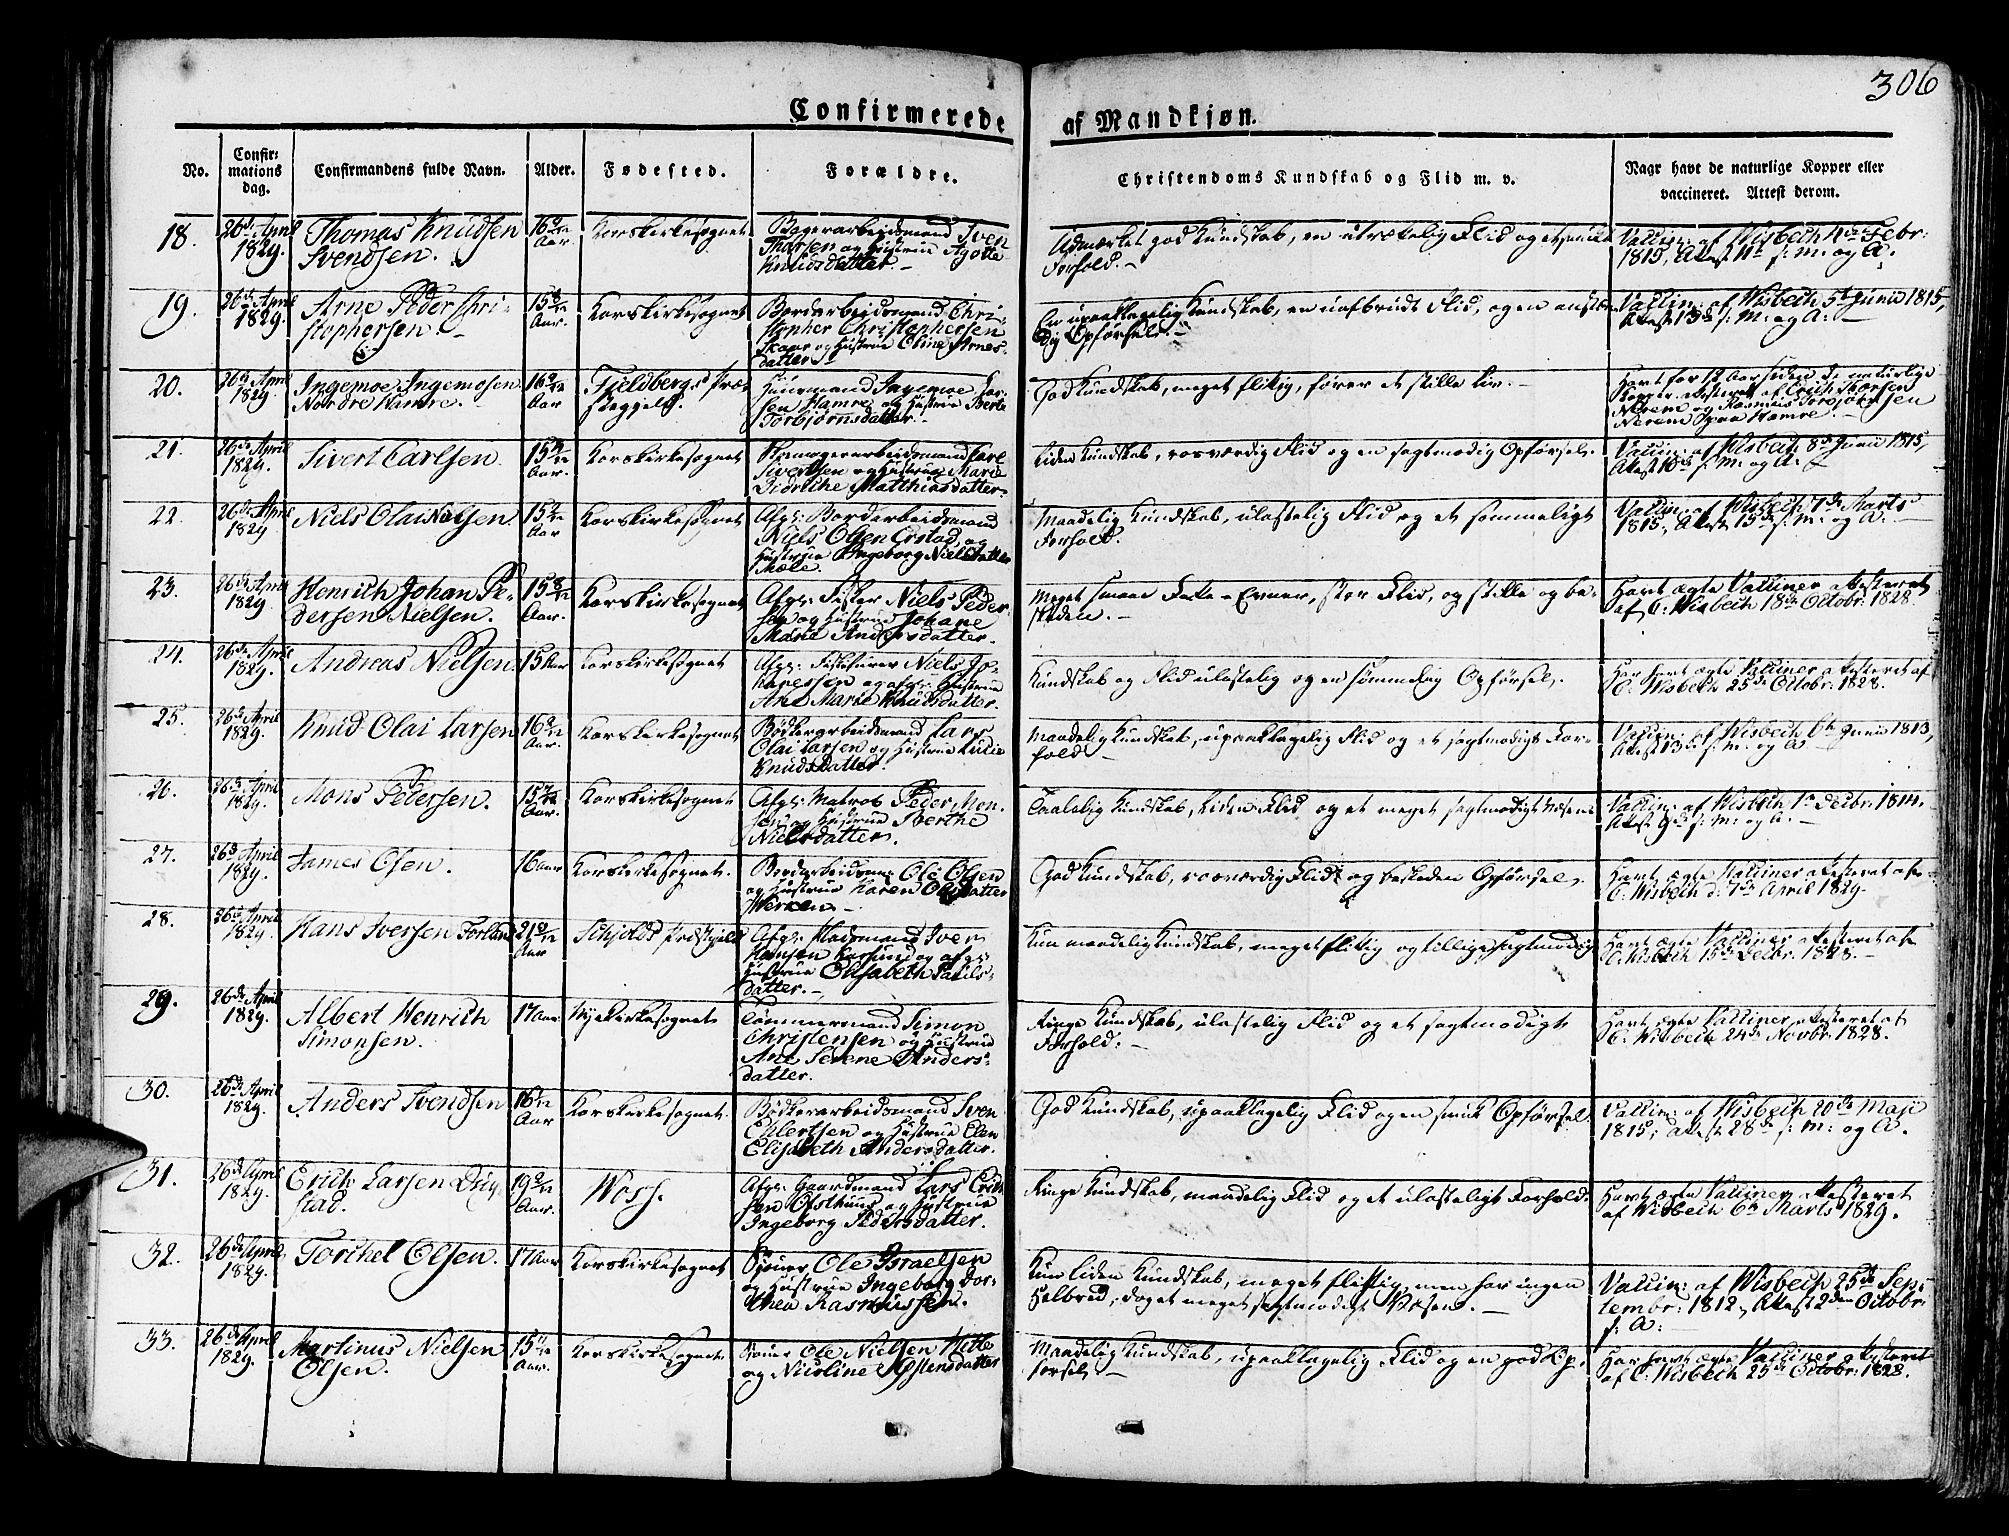 306
Confirmerede af Mandkjøn.
No. Confir- mations dag. Confirmandens fulde Navn. Alder. Fødested. Forældre. Christendoms Kundskab og Flid m. v. Naar havt de naturlige Kopper eller vaccineret. Attest derom.
18. 26de April 1829. Thomas Knudsen Svendsen. 16 Aar Korskirkesognet Bagerarbeidsmand Sven Thorsen og Hustrue Agathe Knudsdatter. Udmærket god Kundskab, en utrættelig Flid og et smukt Forhold. Vaccin: af Wisbech 11te Febr: 1815, Attest 11te s: M: og A.
19. 26de April 1829. Arne Peder Christophersen. 15 Aar. Korskirkesognet Bordarbeidsmand Christopher Christophersen Skaar og Hustrue Oline Arnesdatter. En upaaklagelig Kundskab, en uafbrudt Flid, og en anstændig Opførsel. Vaccin: af Wisbech 5te Junii 1815, Attest 13de s: M: og A:
20. 26de April 1829. Ingemoe Ingemosen Nordre Hamre. 16 Aar Fjeldbergs Præstegjeld. Huusmand Ingemoe Larsen Hamre og Hustrue Berte Torbjørnsdatter. God Kundskab, meget flittig, fører et stille Liv. Havt for 12 Aar siden de naturlige Kopper attesteret af Erich
21. 26de April 1829. Sivert Carlsen. 15 Aar. Korskirkesognet Skomagerarbeidsmand Carl Sivertsen og Hustrue Marie Didriche Matthisdatter. Liden Kundskab, rosværdig Flid og en sagtmodig Opførsel. Vaccin: af Wisbech 8de Junii 1815, Attest 10de s: M: og A:
22. 26de April 1829. Niels Olai Nielsen. 15 Aar Korskirkesognet Afg: Bordarbeidsmand Niels Olsen Erstad og Hustrue Ingeborg Nielsdatter Maadelig Kundskab, ulastelig Flid og et sømmeligt Forhold. Vaccin: af Wisbech 7de Marts 1815, Attest 15de s: M: og A:
23. 26de April 1829. Henrich Johan Pedersen Nielsen. 15 8/12 Aar. Korskirkesognet Afg: Fisker Niels Pedersen og Hustrue Johane Marie Andersdatter. Meget smaae Evner, stor Flid, og stille og beskeden. Havt ægte Vacciner attesteret af C: Wisbech 18de Octobr: 1828.
24. 26de April 1829. Andreas Nielsen. 15 Aar Korskirkesognet Afg: Niels Johanessen og afg: Hustrue Ane Marie Knudsdatter. Kundskab og Flid ulastelig og en sømmelig Opførsel. Har havt ægte Vacciner attesteret af C: Wisbech 25de Octobr: 1828.
25. 26de April 1829. Knud Olai Larsen 16 Aar. Korskirkesognet Bødkerarbeidsmand Lars Olai Larsen og Hustrue Lucie Knudsdatter. Maadelig Kundskab, upaaklagelig Flid og et sagtmodigt Forhold Vaccin: af Wisbech 6te Junii 1813, Attest 13de s: M: og A
26. 26de April 1829. Mons Pedersen. 15 Aar. Korskirkesognet Afg: Matros Peder Monsen og Hustrue Berthe Nielsdatter. Taalelig Kundskab, liden Flid og et meget sagtmodigt Væsen Vaccin: af Wisbech 1te Decbr: 1814. Attest 9de s: M: og A:
27. 26de April 1829. James Olsen. 16 Aar Korskirkesognet. Bordarbeidsm: Ole Olsen og Hustrue Karen Olsdatter God Kundskab, rosværdig Flid og beskeden Opførsel. Havt ægte Vacciner attesteret af C: Wisbech d: 7de April 1829.
28. 26de April 1829. Hans Iversen Forland 21 Aar Schjolds Præstegjeld Afg: Iver Hansen og afg: Hustrue Elisabeth Paulsdatter. Kun maadelig Kundskab, meget flittig og tillige sagtmodig Havt ægte Vacciner attesteret af C: Wisbech 15de Decbr: 1828.
29. 26de April 1829. Albert Henrich Simonsen. 17 Aar Nyekirkesognet Tømmermand Simon Christensen og Hustrue Ane Serene Andersdatter. Ringe Kundskab, ulastelig Flid og et sagtmodigt Forhold. Havt ægte Vacciner attesteret af C: Wisbech 24de Novbr: 1828.
30. 26de April 1829. Anders Svendsen 16 Aar Korskirkesognet. Bødkerarbeidsmand Sven Ehlertsen og Hustrue Elen Elisabeth Andersdatter. God Kundskab, upaaklagelig Flid og en smuk Opførsel. Vaccin: af Wisbech 20de Maji 1815; Attest 28de s: M: og A.
31. 26de April 1829. Erich Larsen 19 Aar. Woss. Afg: Gaardmand Lars Erichsen Ofsthuus og Hustrue Ingeborg Pedersdatter. Ringe Kundskab, maadelig Flid og et ulasteligt Forhold. Havt ægte Vacciner attesteret af Wisbech 6te Marts 1829.
32. 26de April 1829. Torchel Olsen. 17 Aar Korskirkesognet Ole Israelsen og Hustrue Ingeborg Dorthea Rasmussen. Kun liden Kundskab, meget flittig, men har ingen Helbred, doget meget sagtmodigt Væsen. Vaccin: af Wisbech 25de September: 1812, Attest 2den Octobr: s: A:
33. 26de April 1829. Martinus Nielsen Olsen. 15 11/12 Aar. Korskirkesognet Ole Nielsen og Nicoline Maadelig Kundskab, upaaklagelig Flid og en god Opførsel. Har havt ægte Vacciner attesteret af C: Wisbech 25de Octobr: 1828.